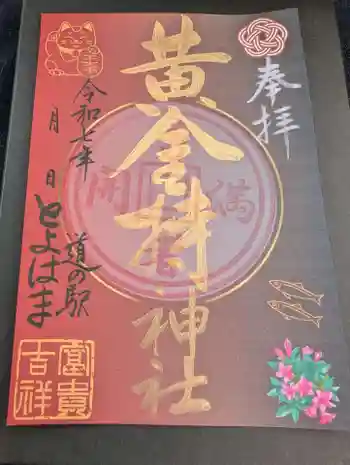 奉拝
黄金持神社
令和七年
月 日
道の駅
とよはま
富貴
吉祥